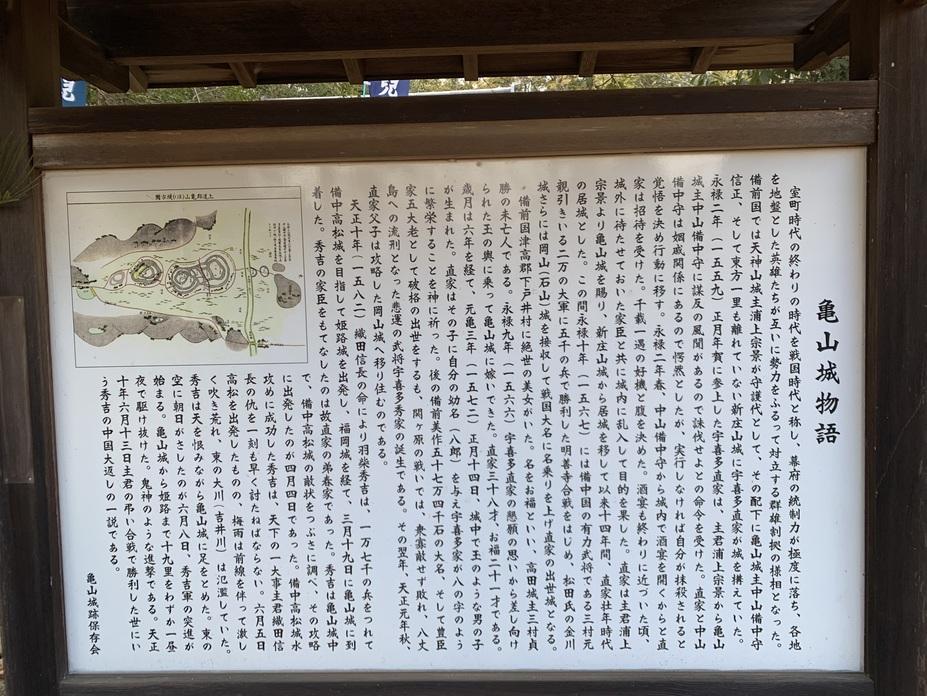 亀山城物語
室町時代の終わりの時代を戦国時代と称し、幕府の統制力が極度に落ち、各地
を地盤とした英雄たちが互いに勢力をふるって対立する群雄割拠の様相となった。
備前国では天神山城主浦上宗景が守護代として、その配下に亀山城主中山備中守
信正、そして東方一里も離れていない新庄山城に宇喜多直家が城を構えていた。
永禄二年（一五五九）正月年賀に参上した宇喜多直家は、主君浦上宗景から亀山
城主中山備中守に謀反の風聞があるので誅伐せよとの命令を受けた。直家と中山
備中守は姻戚関係にあるので愕然としたが、実行しなければ自分が抹殺されると
覚悟を決め行動に移す。永禄二年春、中山備中守から城内で酒宴を開くからと直
家は招待を受けた。千載一遇の好機と腹を決めた。酒宴も終わりに近づいた頃、
城外に待たせておいた家臣と共に城内に乱入して目的を果した。直家は主君浦上
宗景より亀山城を賜り、新庄山城から居城を移して以来十四年間、直家壮年時代
の居城とした。この間永禄十年（一五六七）には備中国の有力武将である三村元
親引きいる二万の大軍に五千の兵で勝利した明善寺合戦をはじめ、松田氏の金川
城さらには岡山（石山）城を接収して戦国大名に名乗りを上げ直家の出世城となる。
備前国津高郡下戸井村に絶世の美女がいた。名をお福といい、高田城主三村貞
勝の未亡人である。永禄九年（一五六六）宇喜多直家の懇願の思いから差し向け
られた玉の輿に乗って亀山城に嫁いできた。直家三十八才、お福二十一才である。
歳月は六年を経て、元亀三年（一五七二）正月十四日、城中で玉のような男の子
が生まれた。直家はその子に自分の幼名（八郎）を与え宇喜多家が八の字のよう
に繁栄することを神に祈った。後の備前美作五十七万四千石の大名、そして豊臣
家五大老として破格の出世をするも、関ヶ原の戦いでは、衆寡敵せず敗れ、八丈
島への流刑となった悲運の武将宇喜多秀家の誕生である。その翌年、天正元年秋、
直家父子は攻略した岡山城へ移り住むのである。
天正十年（一五八二）織田信長の命により羽柴秀吉は、一万七千の兵をつれて
備中高松城を目指して姫路城を出発し、福岡城を経て、三月十九日に亀山城に到
着した。秀吉の家臣をもてなしたのは故直家の弟春家であった。秀吉は亀山城中
で、備中高松城の敵状をつぶさに調べ、その攻略
に出発したのが四月四日であった。備中高松城水
攻めに成功した秀吉は、天下の一大事主君織田信
長の仇を一刻も早く討たねばならない。六月五日
高松を出発したものの、梅雨は前線を伴って激し
く吹き荒れ、東の大川（吉井川）は氾濫していた。
秀吉は天を恨みながら亀山城に足をとめた。東の
空に朝日がさしたのが六月八日、秀吉軍の突進が
始まる。亀山城から姫路まで十九里をわずか一昼
夜で駆け抜けた。鬼神のような進撃である。天正
十年六月十三日主君の弔い合戦で勝利した世にい
う秀吉の中国大返しの一説である。
亀山城跡保存会